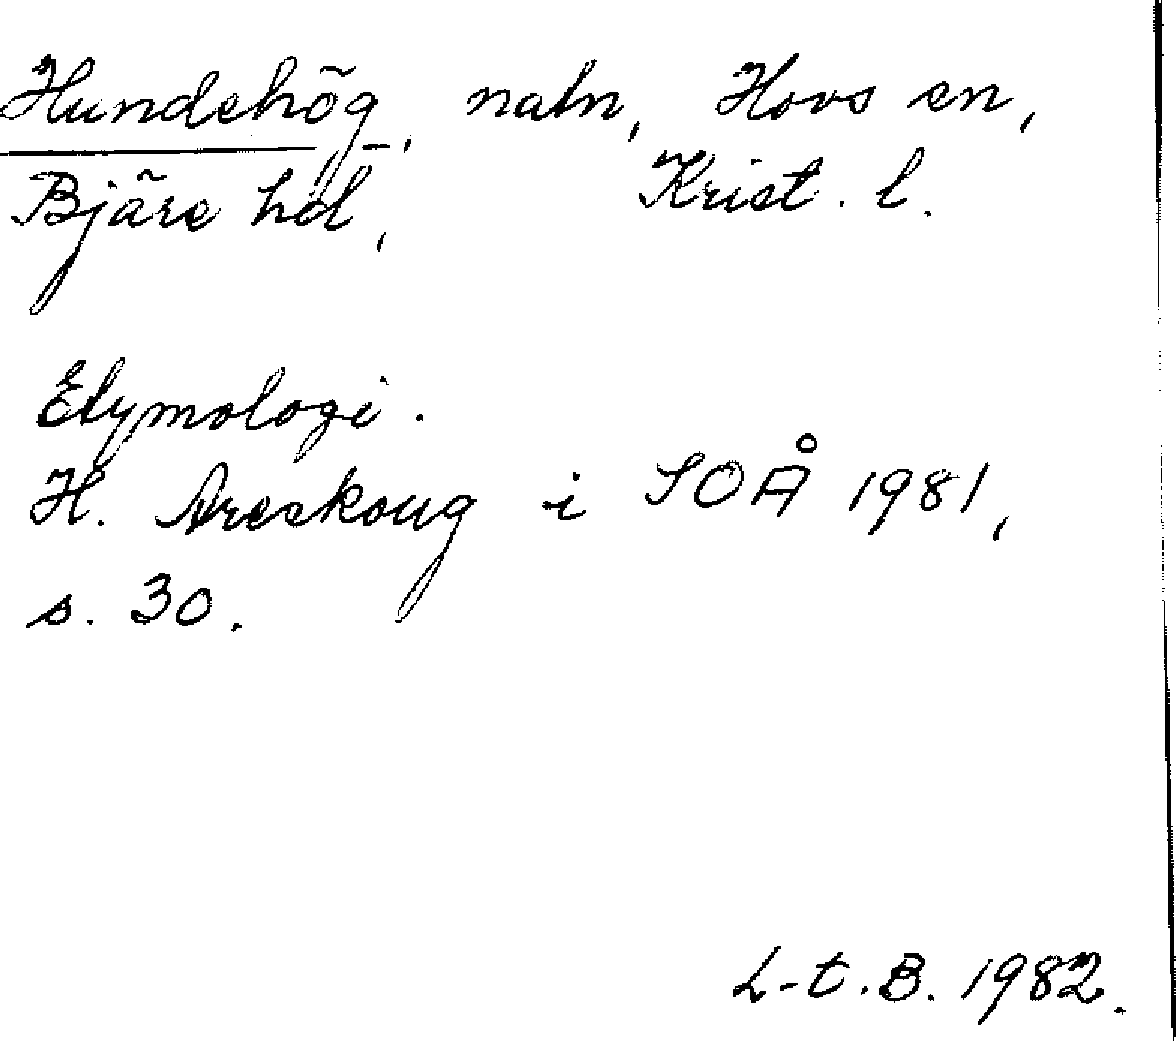 Hundehög, natn, Hovs sn,
Bjäre hd, Krist. l.
Etymologi.
H. Areskoug i SOÅ 1981,
s. 30.
L-t. B. 1982.